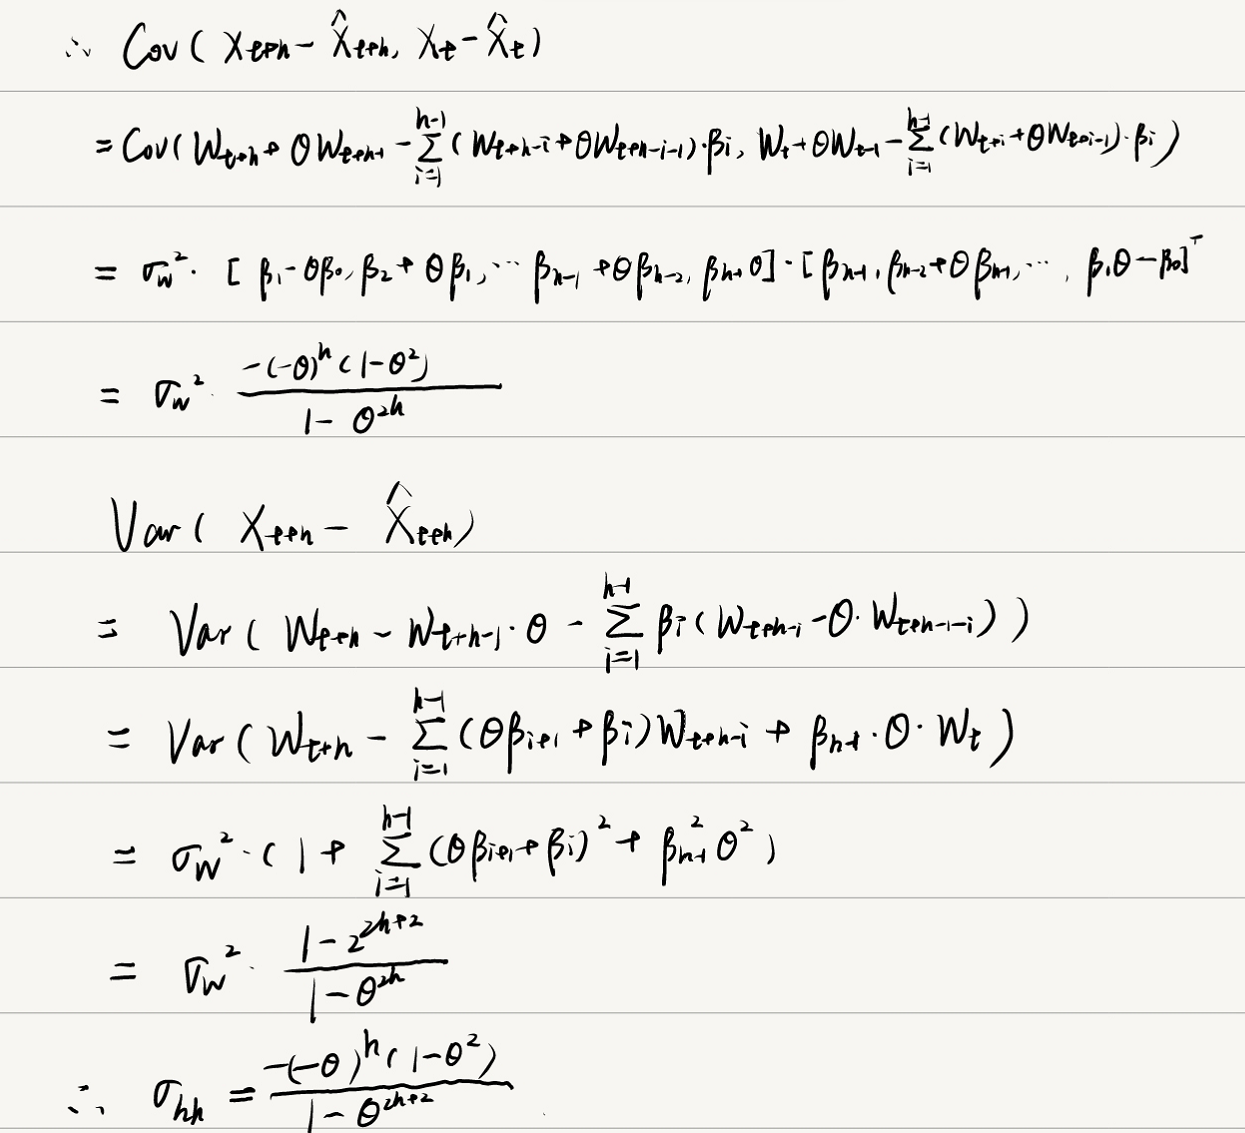 ∴ Cov( X_{t+h} - \hat{X}_{t+h}, X_t - \hat{X}_t )
= Cov( W_{t+h} + θW_{t+h-1} - \sum_{i=1}^{h-1} (W_{t+h-i} + θW_{t+h-i-1})·β_i, W_t + θW_{t-1} - \sum_{i=1}^{h-1} (W_{t+i} + θW_{t+i-1})·β_i )
= σ_w^2 · [ β_1 - θβ_0, β_2 + θβ_1, ··· β_{h-1} + θβ_{h-2}, β_{h-1} θ ] · [ β_{h-1}, β_{h-2} + θβ_{h-1}, ··· , β_1θ - β_0 ]^T
= σ_w^2 · \frac{-(-θ)^h (1-θ^2)}{1 - θ^{2h}}
Var( X_{t+h} - \hat{X}_{t+h} )
= Var( W_{t+h} - W_{t+h-1} · θ - \sum_{i=1}^{h-1} β_i ( W_{t+h-i} - θ · W_{t+h-1-i} ) )
= Var ( W_{t+h} - \sum_{i=1}^{h-1} (θβ_{i+1} + β_i) W_{t+h-i} + β_{h-1} · θ · W_t )
= σ_w^2 · ( 1 + \sum_{i=1}^{h-1} (θβ_{i+1} + β_i)^2 + β_{h-1}^2 θ^2 )
= σ_w^2 · \frac{1 - 2^{2h+2}}{1 - θ^{2h}}
∴ σ_{hh} = \frac{-(-θ)^h (1-θ^2)}{1 - θ^{2h+2}}